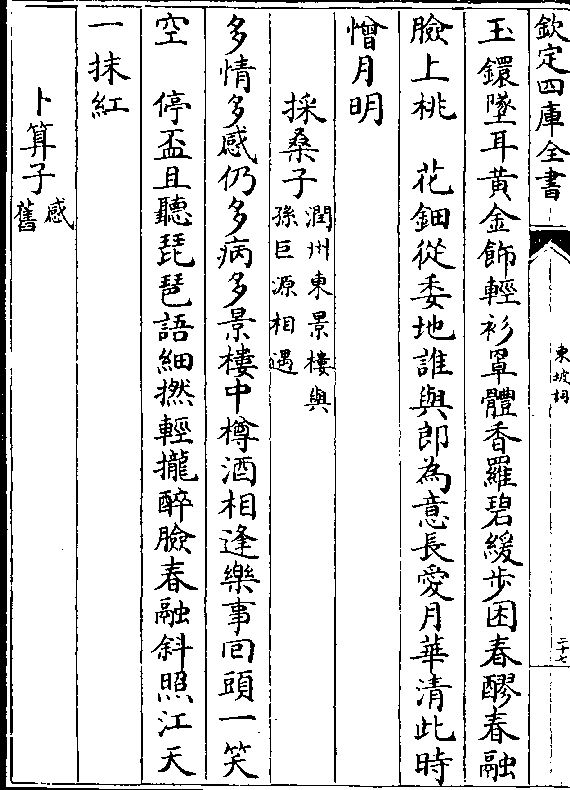 欽定四庫全書
東坡詞
二十七
玉鐶墜耳黃金飾輕衫罩體香羅碧緩步困春醪春融
臉上桃　花鈿從委地誰與郎為意長愛月華清此時
憎月明
採桑子潤州東景樓與
孫巨源相遇
多情多感仍多病多景樓中樽酒相逢樂事囘頭一笑
空　停盃且聽琵琶語細撚輕攏醉臉春融斜照江天
一抹紅
卜算子感
舊